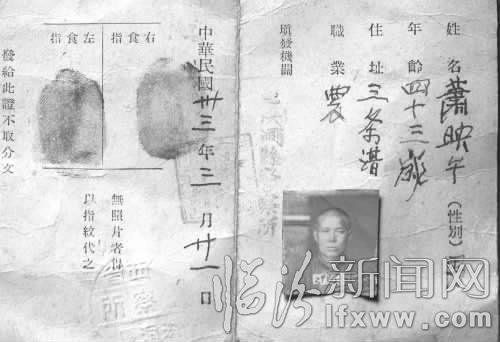 姓名 蕭映午 (性別)
年齡 四十三歲
住址 三条溝
職業 農
填發機關
中華民國卅三年三月廿一日
右食指
左食指
無照片者
以指紋代之
發給此證不取分文
临汾新闻网
lfxww.com